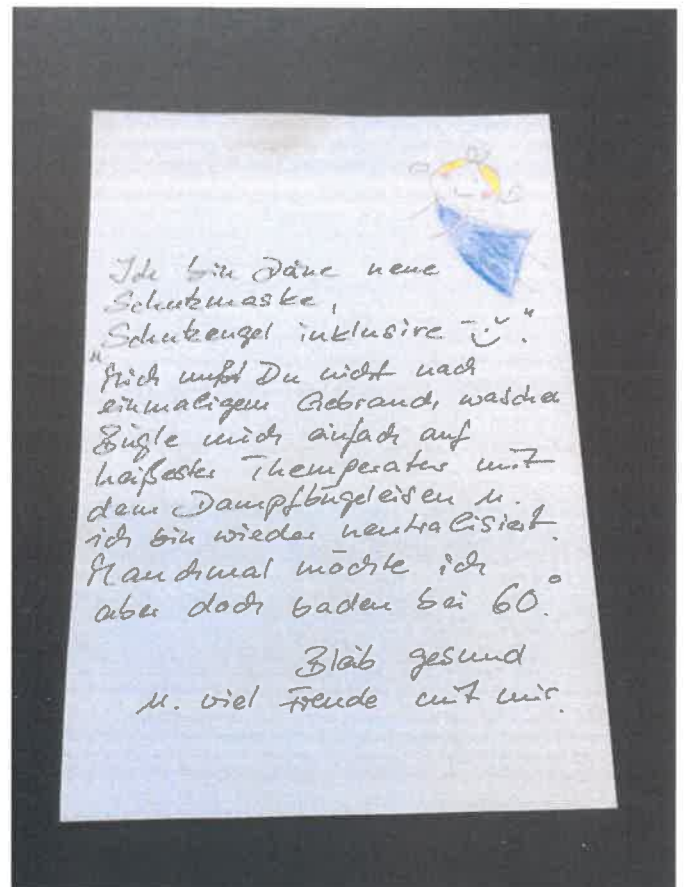 Ich bin Deine neue
Schutzmaske,
Schutzengel inklusive -".
"Mich mußt Du nicht nach
einmaligem Gebrauch, waschen
Bügle mich einfach auf
heißester Themperatur mit
dem Dampfbügeleisen u.
ich bin wieder neutralisiert.
Manchmal möchte ich
aber doch baden bei 60°.
Bleib gesund
u. viel Freude mit mir.